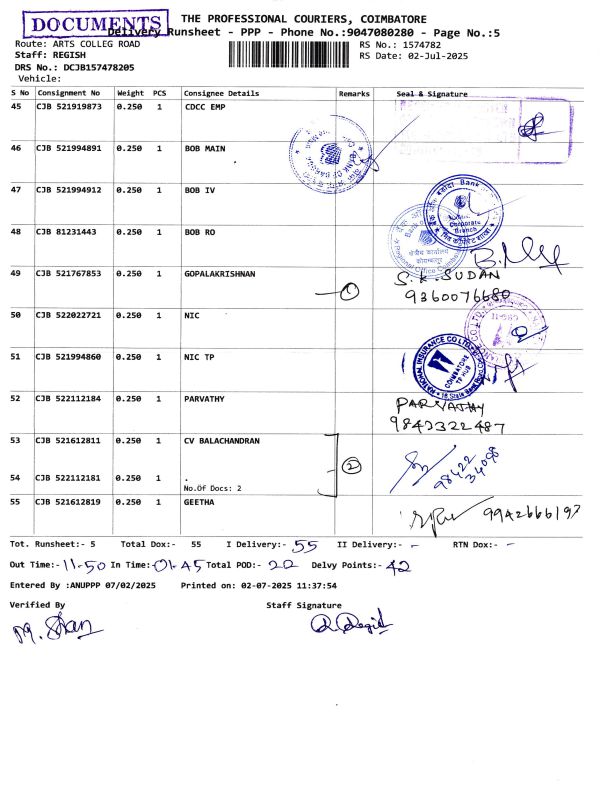 DOCUMENTS
THE PROFESSIONAL COURIERS, COIMBATORE
Delivery Runsheet - PPP - Phone No.:9047080280 - Page No.:5
Route: ARTS COLLEG ROAD
RS No.: 1574782
Staff: REGISH
RS Date: 02-Jul-2025
DRS No.: DCJB157478205
Vehicle:
S No Consignment No Weight PCS Consignee Details Remarks Seal & Signature
45 CJB 521919873 0.250 1 CDCC EMP
46 CJB 521994891 0.250 1 BOB MAIN
47 CJB 521994912 0.250 1 BOB IV
Corporate
Branch
48 CJB 81231443 0.250 1 BOB RO
49 CJB 521767853 0.250 1 GOPALAKRISHNAN
S.K. SUDAN
9360076680
50 CJB 522022721 0.250 1 NIC
51 CJB 521994860 0.250 1 NIC TP
NATIONAL INSURANCE CO LTD
COIMBATORE
TP HUB
52 CJB 522112184 0.250 1 PARVATHY
PARVATHY
9843322487
53 CJB 521612811 0.250 1 CV BALACHANDRAN
2
98422
34098
54 CJB 522112181 0.250 1 .
No.Of Docs: 2
55 CJB 521612819 0.250 1 GEETHA
9942666197
Tot. Runsheet:- 5 Total Dox:- 55 I Delivery:- 55 II Delivery:- - RTN Dox:- -
Out Time:- 11-50 In Time:- 01-45 Total POD:- 22 Delvy Points:- 42
Entered By :ANUPPP 07/02/2025 Printed on: 02-07-2025 11:37:54
Verified By Staff Signature